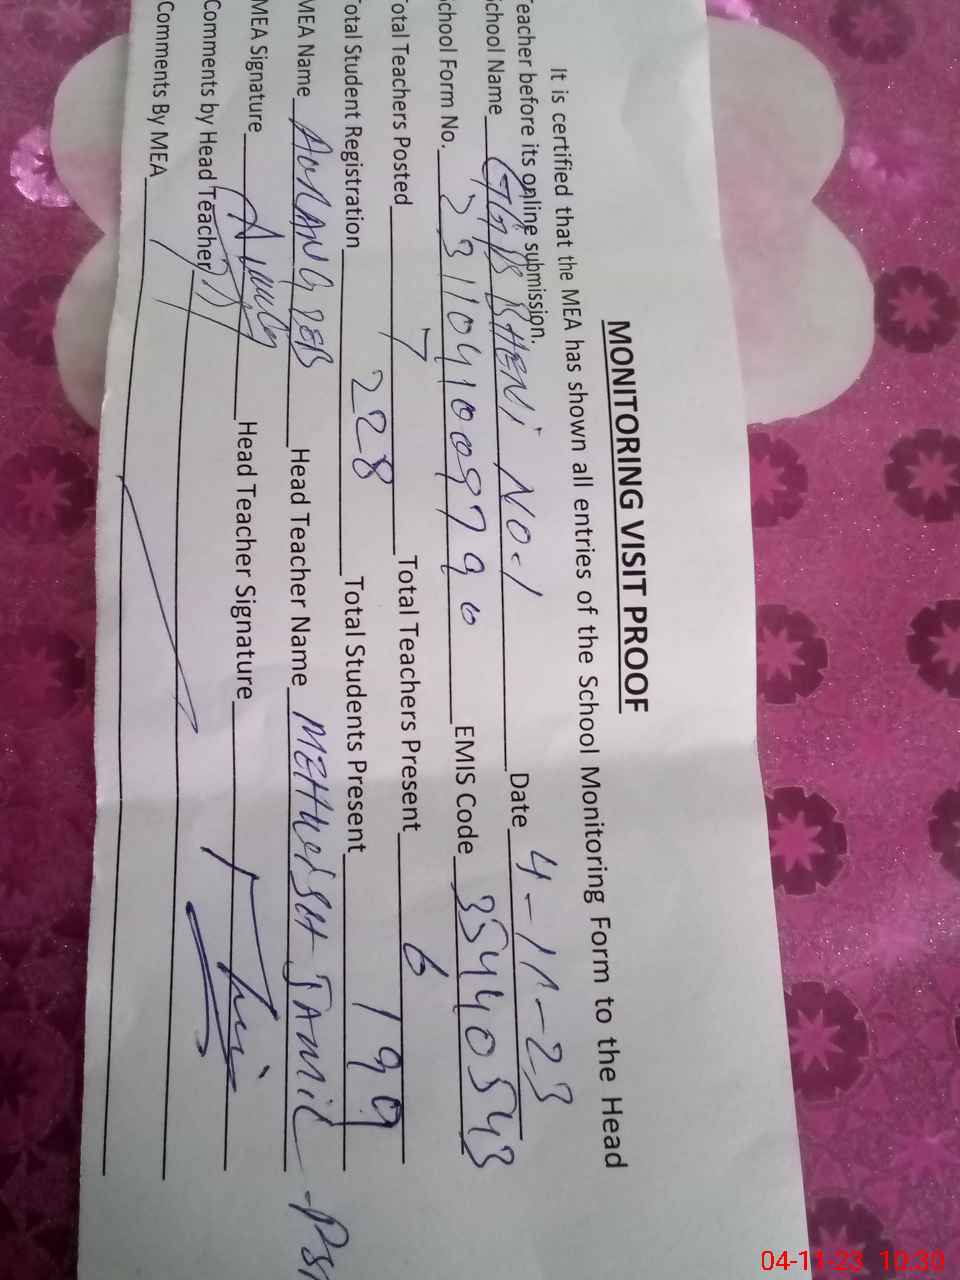 MONITORING VISIT PROOF
It is certified that the MEA has shown all entries of the School Monitoring Form to the Head
Teacher before its online submission.
School Name BHENI NO-1 Date 4-11-23
School Form No. EMIS Code 35440543
Total Teachers Posted 7 Total Teachers Present 6
Total Student Registration 228 Total Students Present 199
MEA Name AURANGZEB Head Teacher Name MEHWISH JAMIL
MEA Signature Head Teacher Signature
Comments by Head Teacher
Comments By MEA
04-11-23 10:30